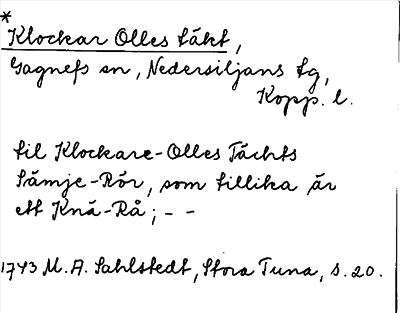 *
Klockar Olles täkt,
Gagnefs sn, Nedersiljans tg,
Kopp. l.
til Klockare-Olles Tächts
Sämje-Rör, som tillika är
ett Knä-Rå; - -
1743 M. A. Sahlstedt, Stora Tuna, s. 20.